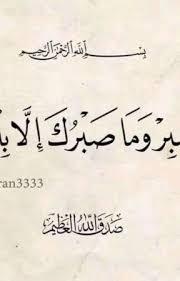 بِسْمِ اللَّهِ الرَّحْمَنِ الرَّحِيمِ
وَمَا صَبْرُكَ إِلَّا
ran3333
صَدَقَ اللَّهُ الْعَظِيمُ